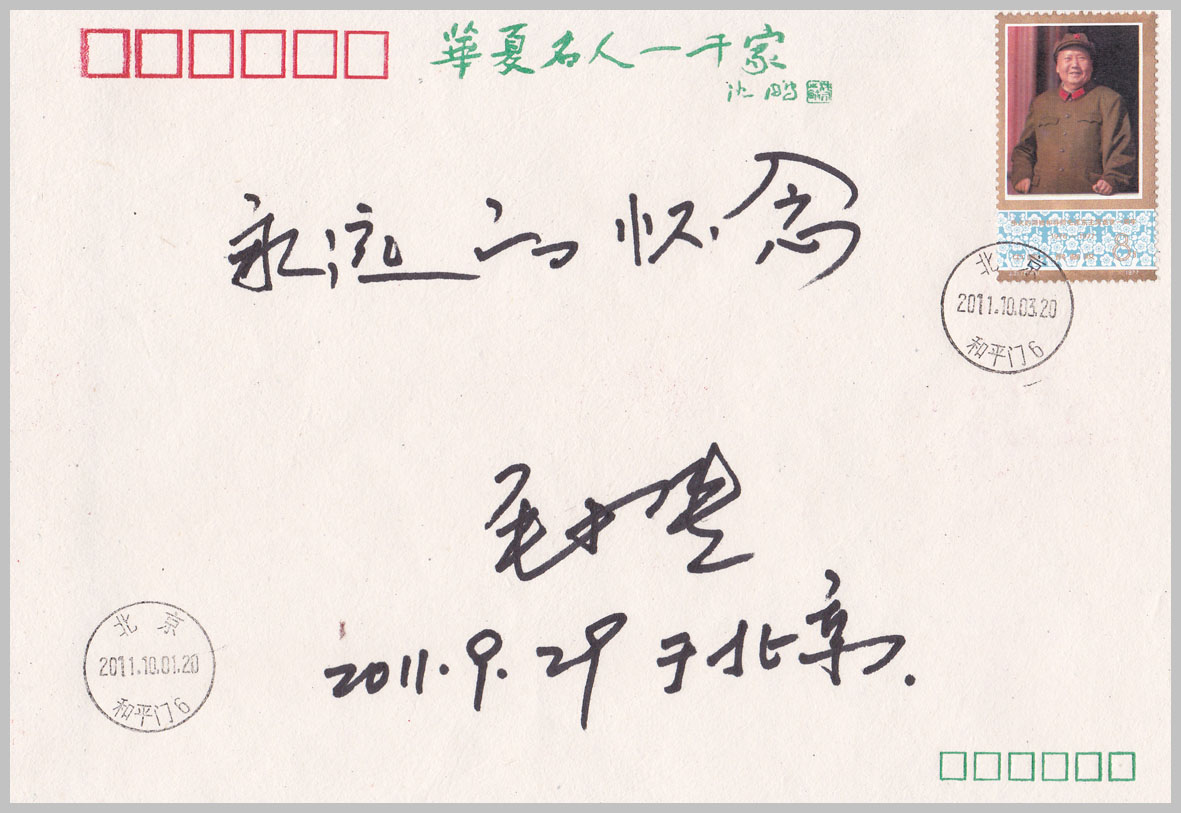 華夏名人一千家
沈鹏
8
北京
2011.10.03.20
和平门6
永远的怀念
2011.9.29于北京.
北京
2011.10.01.20
和平门6